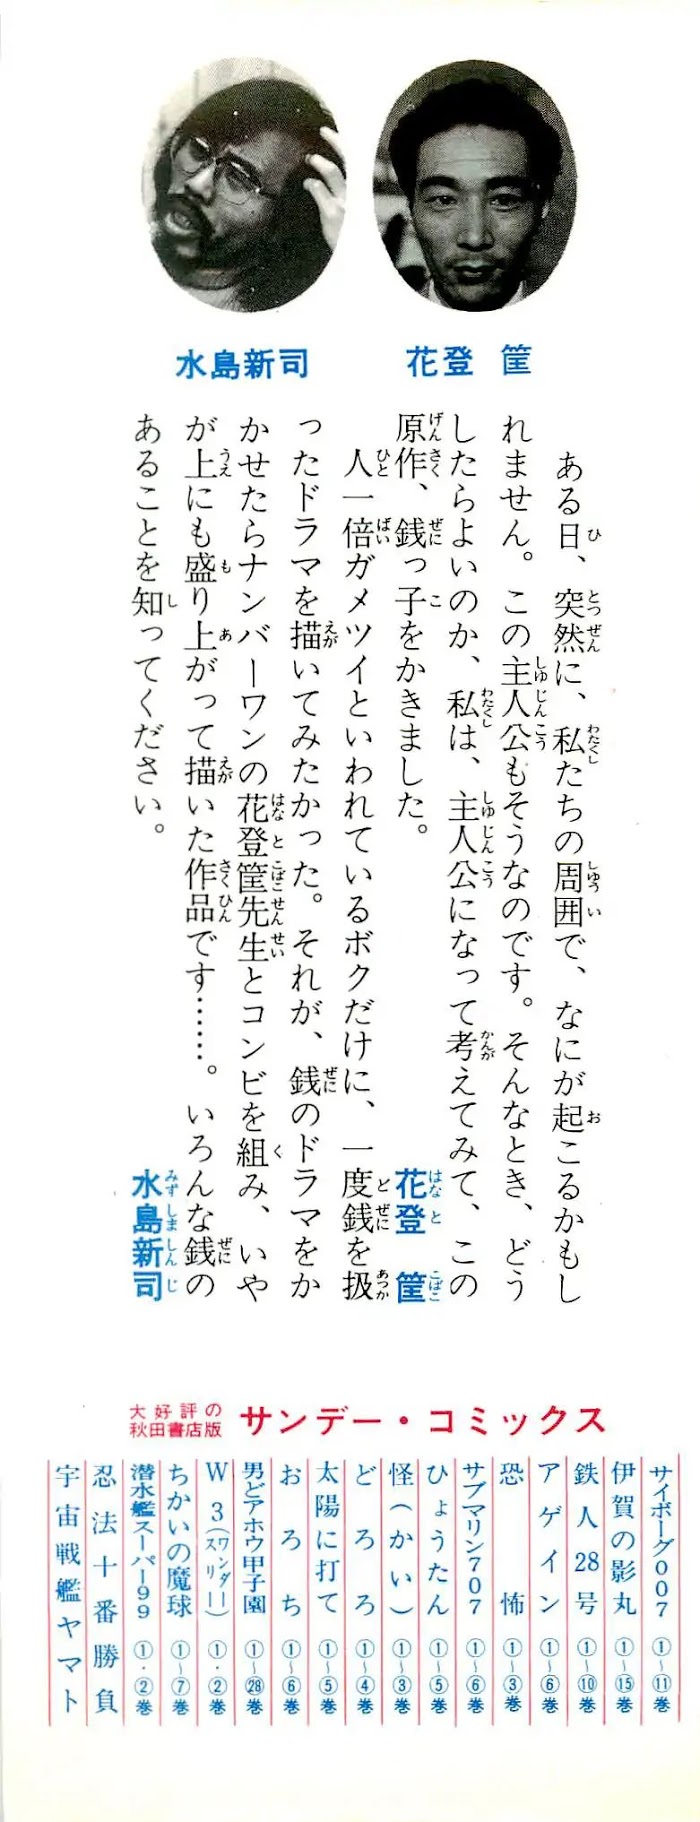 花登 筐
水島新司
ある日、突然に、私たちの周囲で、なにが起こるかもし
れません。この主人公もそうなのです。そんなとき、どう
したらよいのか、私は、主人公になって考えてみて、この
原作、銭っ子をかきました。
花登 筐
人一倍ガメツイといわれているボクだけに、一度銭を扱
ったドラマを描いてみたかった。それが、銭のドラマをか
かせたらナンバーワンの花登筐先生とコンビを組み、いや
が上にも盛り上がって描いた作品です……。いろんな銭の
あることを知ってください。
水島新司
大好評の
秋田書店版
サンデー・コミックス
サイボーグ007 ①〜⑪巻
伊賀の影丸 ①〜⑮巻
鉄人28号 ①〜⑩巻
アゲイン ①〜⑥巻
恐怖 ①〜③巻
サブマリン707 ①〜⑥巻
ひょうたん ①〜⑤巻
怪(かい) ①〜③巻
どろろ ①〜④巻
太陽に打て ①〜⑤巻
おろち ①〜⑥巻
男どアホウ甲子園 ①〜㉘巻
W3(ワンダースリー) ①・②巻
ちかいの魔球 ①〜⑦巻
潜水艦スーパー99 ①・②巻
忍法十番勝負
宇宙戦艦ヤマト